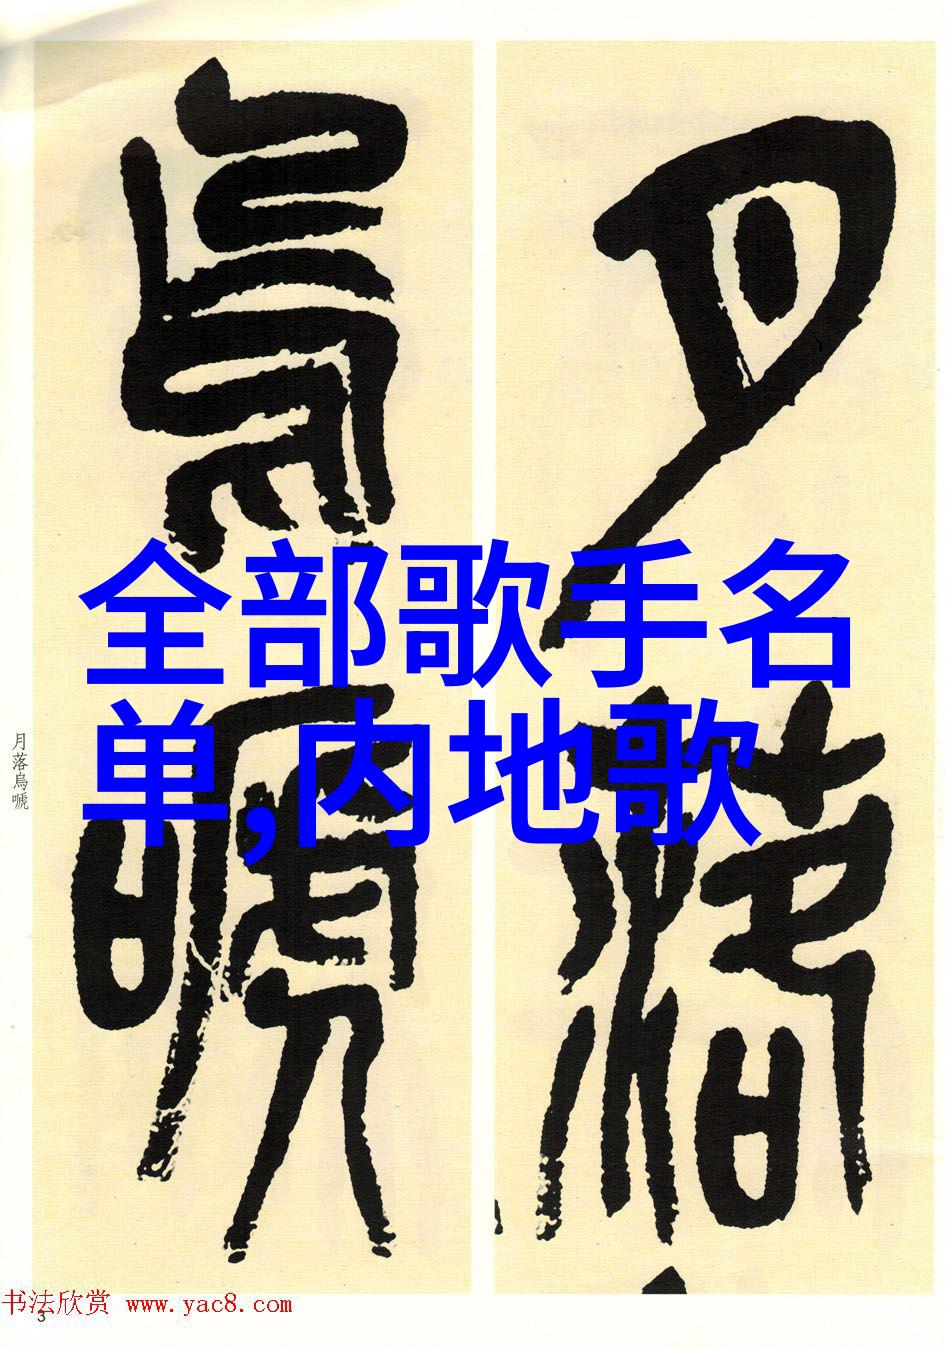 月落
烏嗁
全部歌手名
单,内地歌
月落烏嗁
书法欣赏 www.yac8.com
3